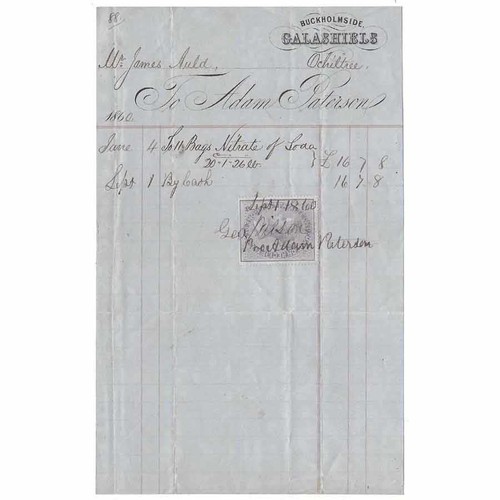 88
BUCKHOLMSIDE,
GALASHIELS
Mr. James Auld, Ochiltree.
To Adam Paterson
1860.
June 4 To 16 Bags Nitrate of Soda
20-1-26 lb. } £ 16 7 8
Sept 1 By Cash 16 7 8
Sept 1 1860
Geo Wilson
Adam Paterson